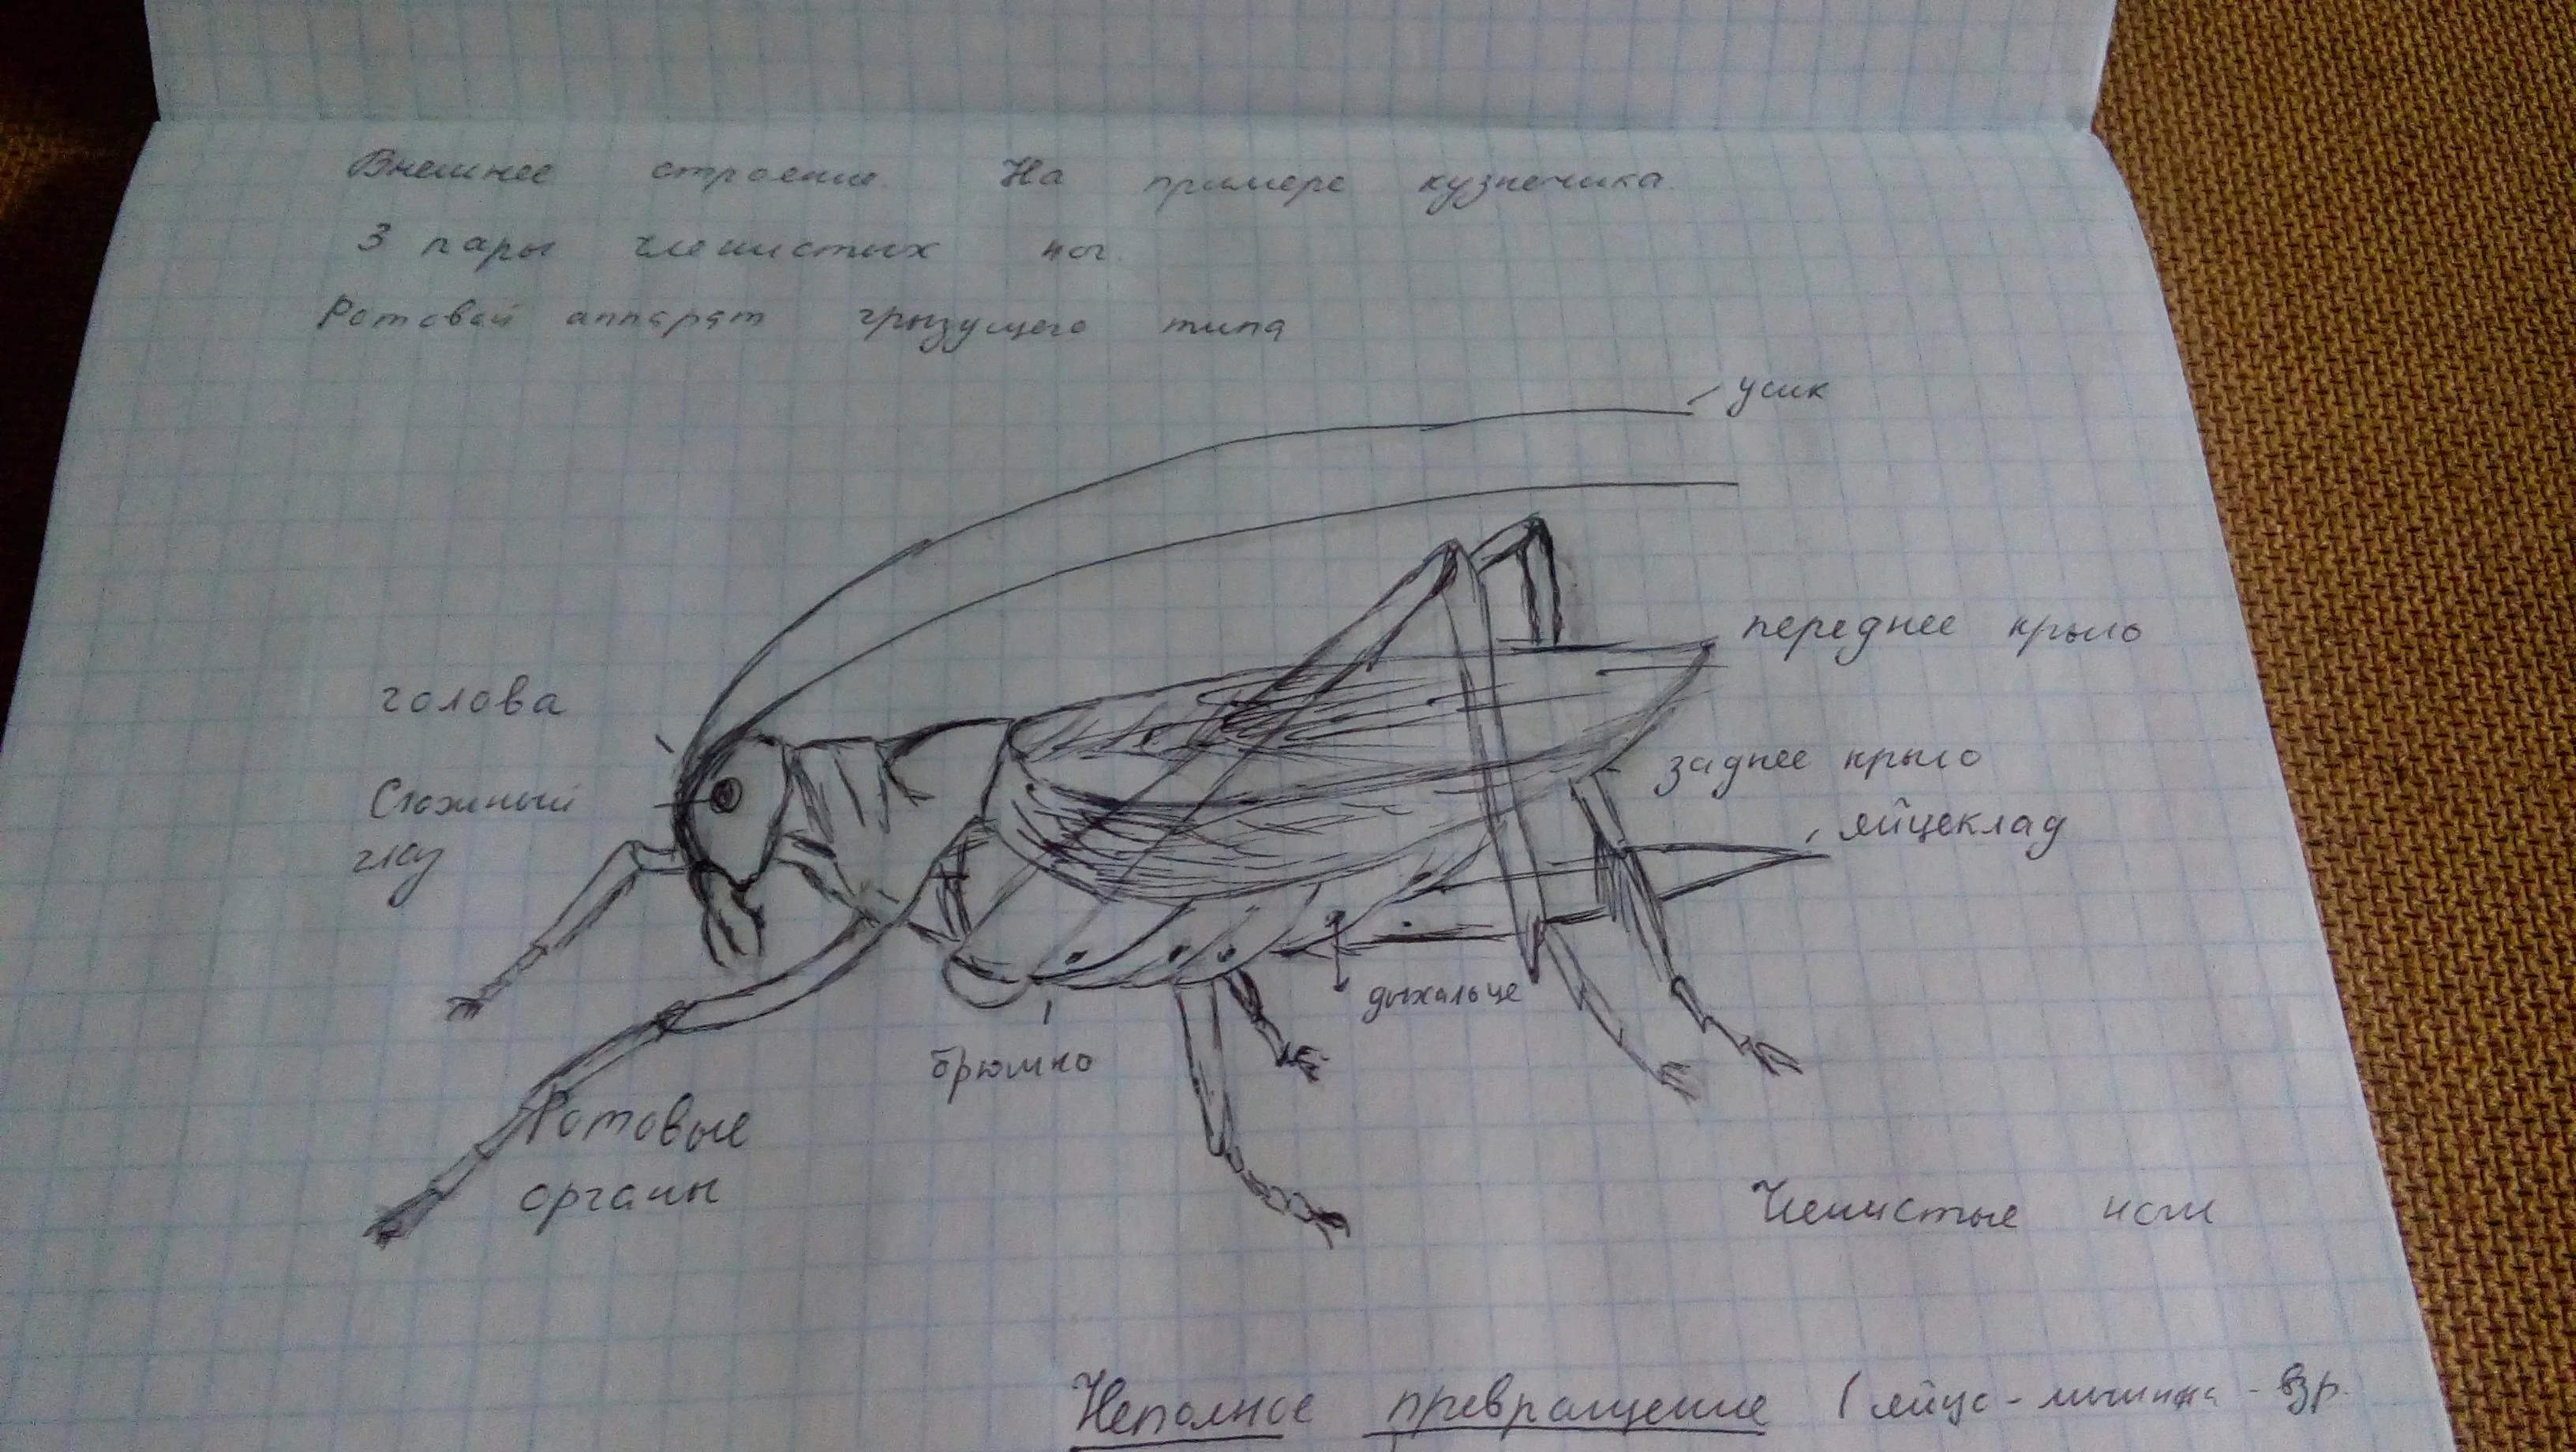 Внешнее строение. На примере кузнечика.
3 пары членистых ног.
Ротовой аппарат грызущего типа
усик
переднее крыло
голова
заднее крыло
Сложный
глаз
яйцеклад
дыхальце
брюшко
Ротовые
органы
Членистые ноги
Неполное превращение (яйцо - личинка - взр.